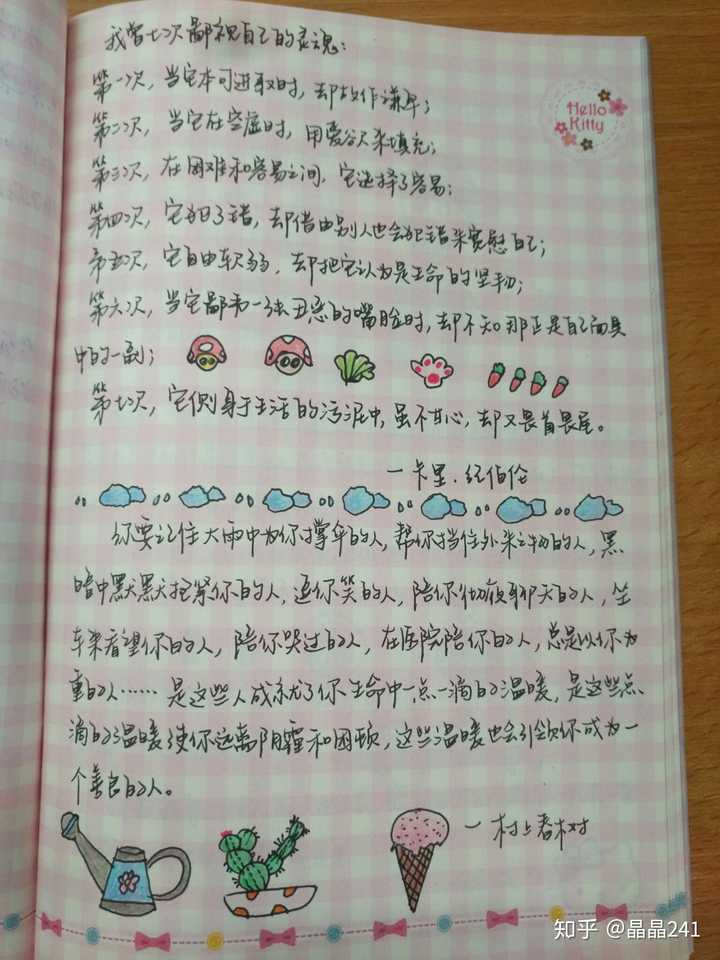 我曾七次鄙视自己的灵魂：
Hello
Kitty
第一次，当它本可进取时，却故作谦卑；
第二次，当它在空虚时，用爱欲来填充；
第三次，在困难和容易之间，它选择了容易；
第四次，它犯了错，却借由别人也会犯错来宽慰自己；
第五次，它自由软弱，却把它认为是生命的坚韧；
第六次，当它鄙夷一张丑恶的嘴脸时，却不知那正是自己面具
中的一副；
第七次，它侧身于生活的污泥中，虽不甘心，却又畏首畏尾。
一卡里.纪伯伦
你要记住大雨中为你撑伞的人，帮你挡住外来之物的人，黑
暗中默默抱紧你的人，逗你笑的人，陪你彻夜聊天的人，坐
车来看望你的人，陪你哭过的人，在医院陪你的人，总是以你为
重的人……是这些人成就了你生命中一点一滴的温暖，是这些点
滴的温暖使你远离阴霾和困顿，这些温暖也会引领你成为一
个善良的人。
一村上春树
知乎 @晶晶241